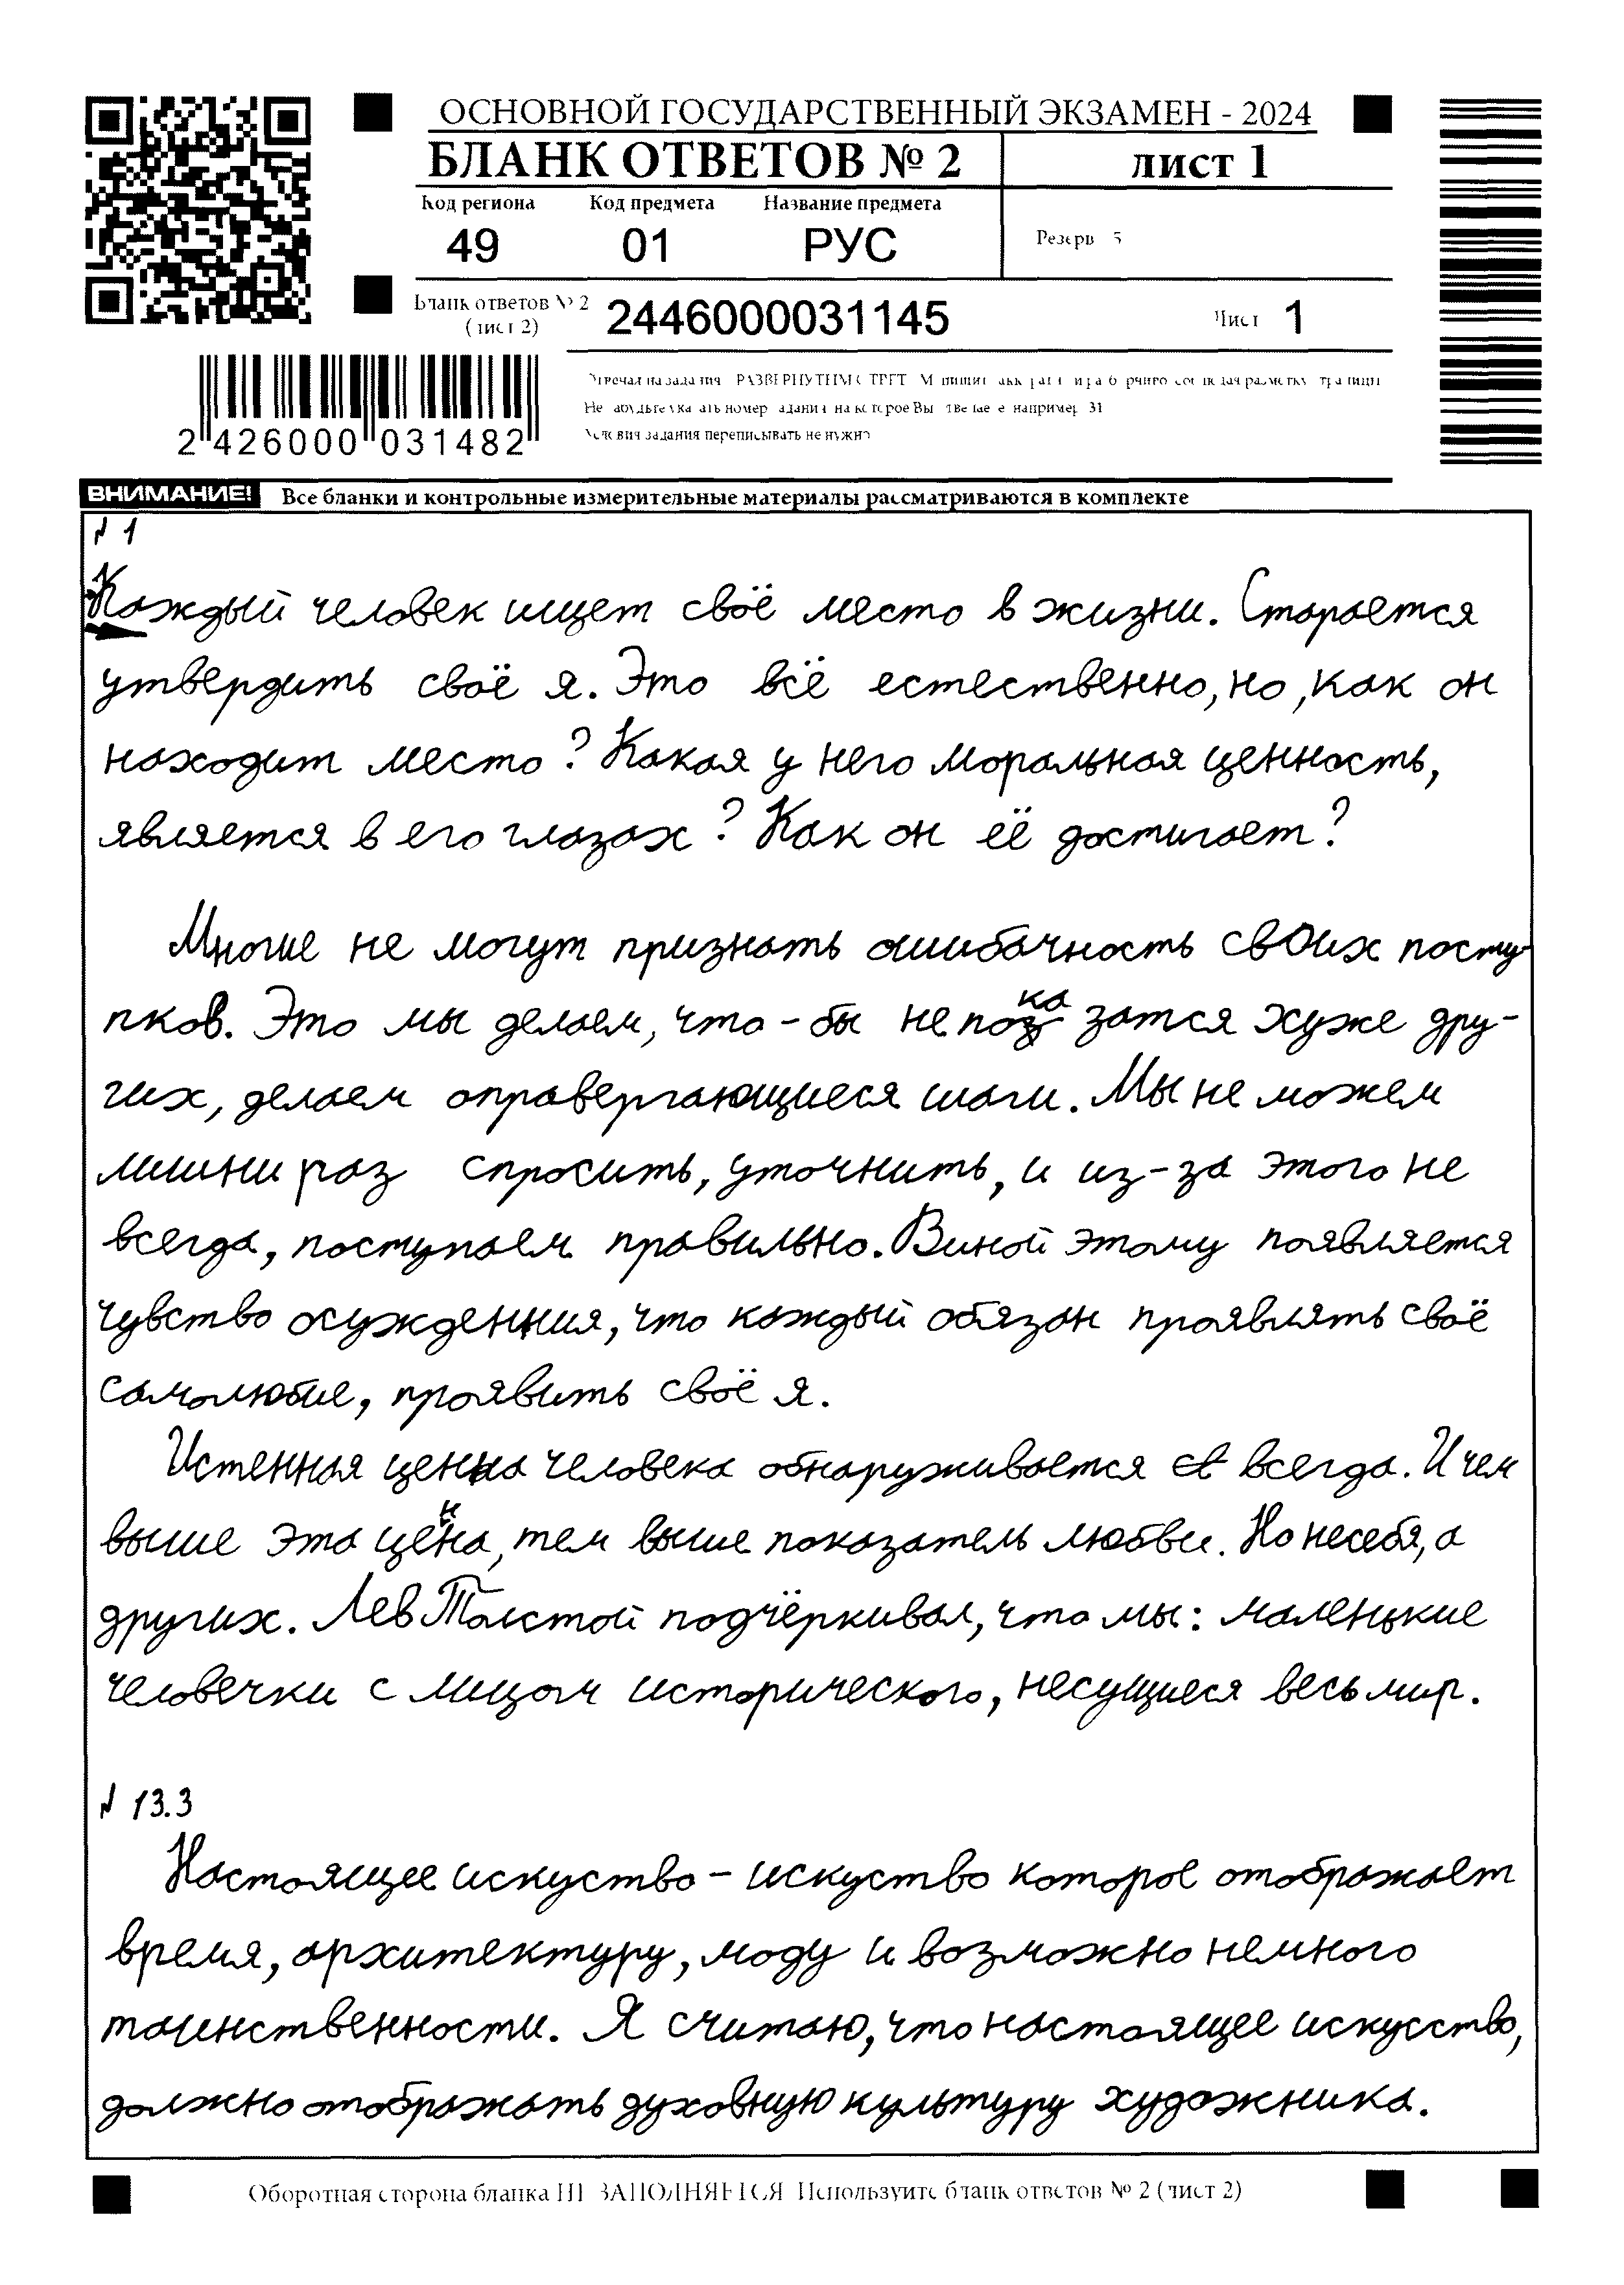 ОСНОВНОЙ ГОСУДАРСТВЕННЫЙ ЭКЗАМЕН - 2024
БЛАНК ОТВЕТОВ № 2 лист 1
Код региона Код предмета Название предмета
49 01 РУС Резерв 5
Бланк ответов № 2 (лист 2) 2446000031145 Лист 1
2 426000 031482
Условия задания переписывать не нужно
ВНИМАНИЕ! Все бланки и контрольные измерительные материалы рассматриваются в комплекте
N 1
Каждый человек ищет своё место в жизни. Старается
утвердить своё я. Это всё естественно, но, как он
находит место? Какая у него моральная ценность,
является в его глазах? Как он её достигает?
Многие не могут признать ошибачность своих посту-
пков. Это мы делаем, что-бы не показатся хуже дру-
гих, делаем оправергающиеся шаги. Мы не можем
лишни раз спросить, уточнить, и из-за этого не
всегда, поступаем правильно. Виной этому появляется
чувство осуждения, что каждый обязан проявлять своё
самолюбие, проявить своё я.
Истенная цена человека обнаруживается всегда. И чем
выше эта цена, тем выше показатель любви. Но не себя, а
других. Лев Толстой подчёркивал, что мы: маленькие
человечки с лицом исторического, несущиеся весь мир.
N 13.3
Настоящее искуство - искуство которое отображает
время, архитектуру, моду и возможно немного
таинственности. Я считаю, что настоящее искусство,
должно отображать духовную культуру художника.
Оборотная сторона бланка НЕ ЗАПОЛНЯЕТСЯ Используйте бланк ответов № 2 (лист 2)